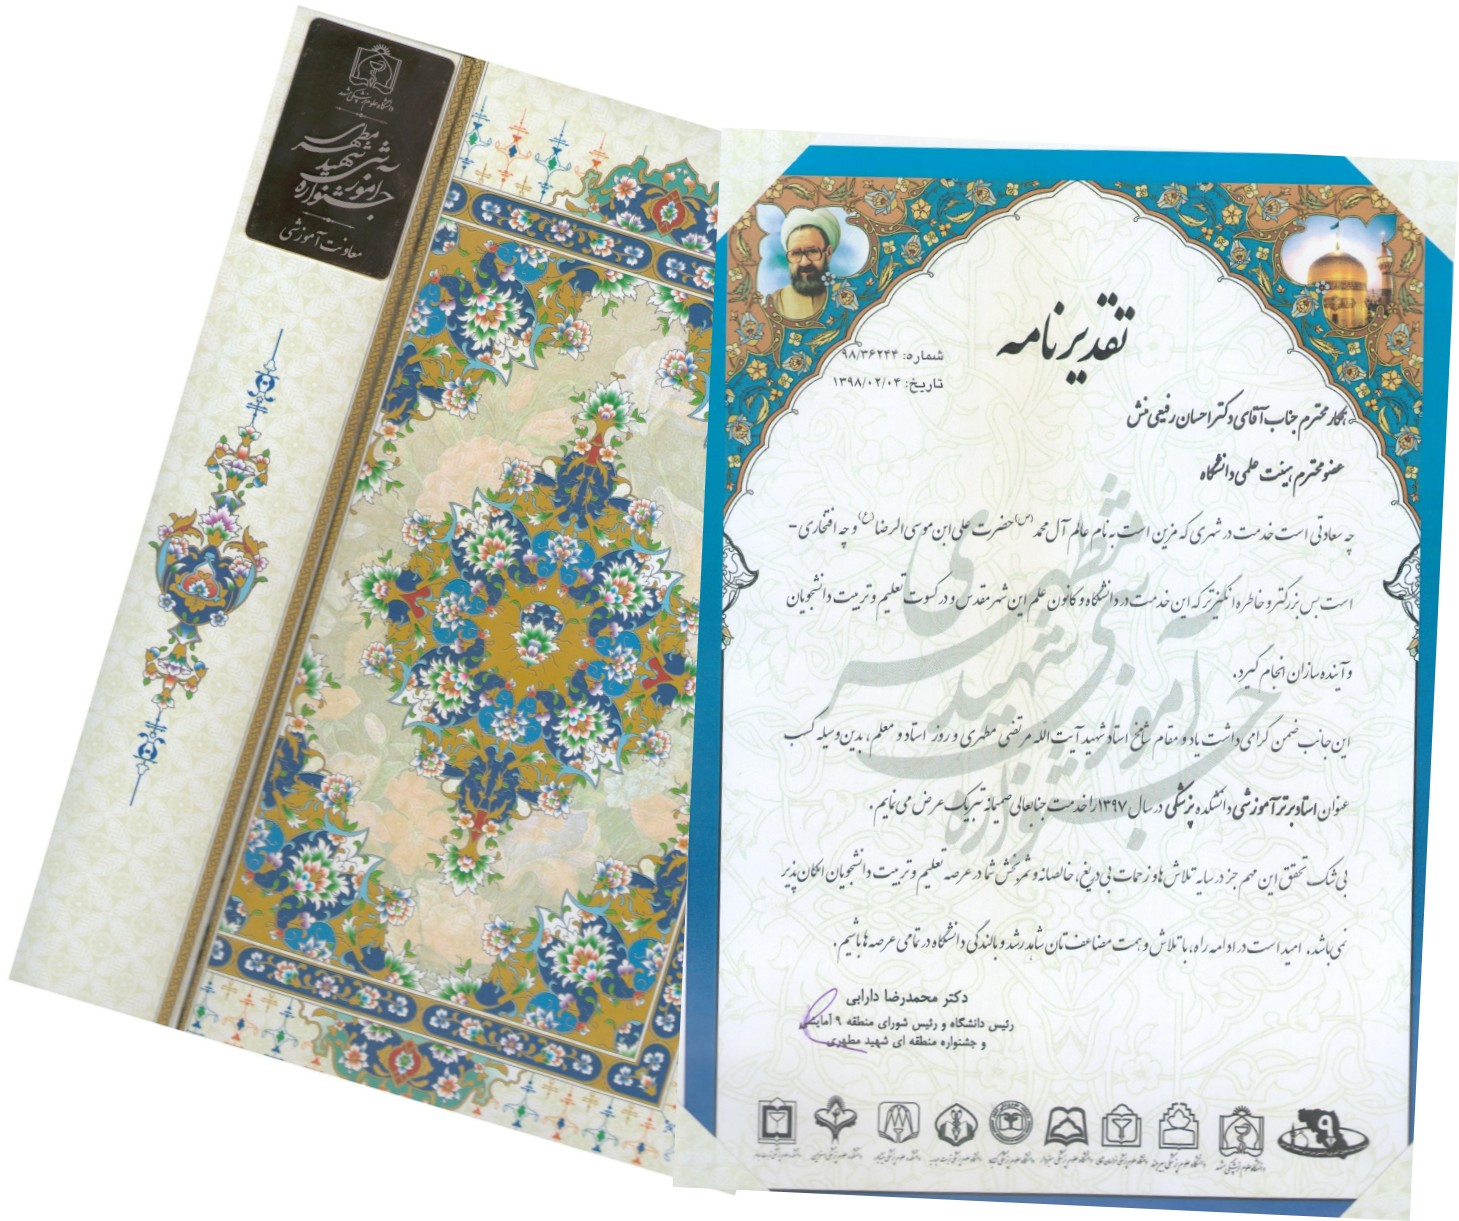 دانشگاه علوم پزشکی مشهد
جشنواره آموزشی شهید مطهری
معاونت آموزشی
تقدیرنامه
شماره: ۹۸/۳۶۲۴۴
تاریخ: ۱۳۹۸/۰۲/۰۴
همکار محترم جناب آقای دکتر احسان رفیعی منش
عضو محترم هیئت علمی دانشگاه
چه سعادتی است خدمت در شهری که مزین است به نام عالم آل محمد (ص) حضرت علی ابن موسی الرضا (ع) و چه افتخاری -
است بس بزرگتر و خاطره انگیزتر که این خدمت در دانشگاه و کانون علم این شهر مقدس و در کسوت تعلیم و تربیت دانشجویان
و آینده سازان انجام گیرد.
این جانب ضمن گرامی داشت یاد و مقام شامخ استاد شهید آیت الله مرتضی مطهری و روز استاد و معلم ، بدین وسیله کسب
عنوان استاد برتر آموزشی دانشکده پزشکی در سال ۱۳۹۷ را خدمت جنابعالی صمیمانه تبریک عرض می نمایم.
بی شک تحقق این مهم جز در سایه تلاش ها و زحمات بی دریغ، خالصانه و ثمربخش شما در عرصه تعلیم و تربیت دانشجویان امکان پذیر
نمی باشد، امید است در ادامه راه، با تلاش و همت مضاعف تان شاهد رشد و بالندگی دانشگاه در تمامی عرصه ها باشیم.
جشنواره آموزشی شهید مطهری
دکتر محمدرضا دارابی
رئیس دانشگاه و رئیس شورای منطقه ۹ آمایشی
و جشنواره منطقه ای شهید مطهری
۹
دانشگاه علوم پزشکی مشهد